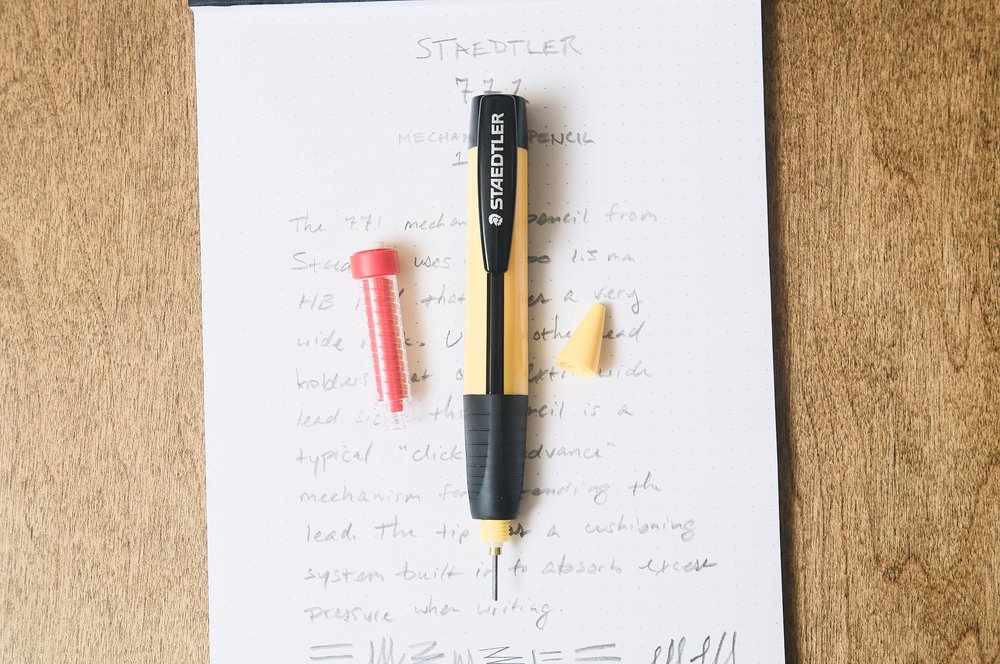 STAEDTLER
771
MECHAN PENCIL
1
STAEDTLER
The 771 mechan pencil from
Staed uses 1.3 mm
HB that a very
wide lead
holders wide
lead is a
typical "click advance"
mechanism the
lead. The tip a cushioning
system built in to absorb excess
pressure when writing.